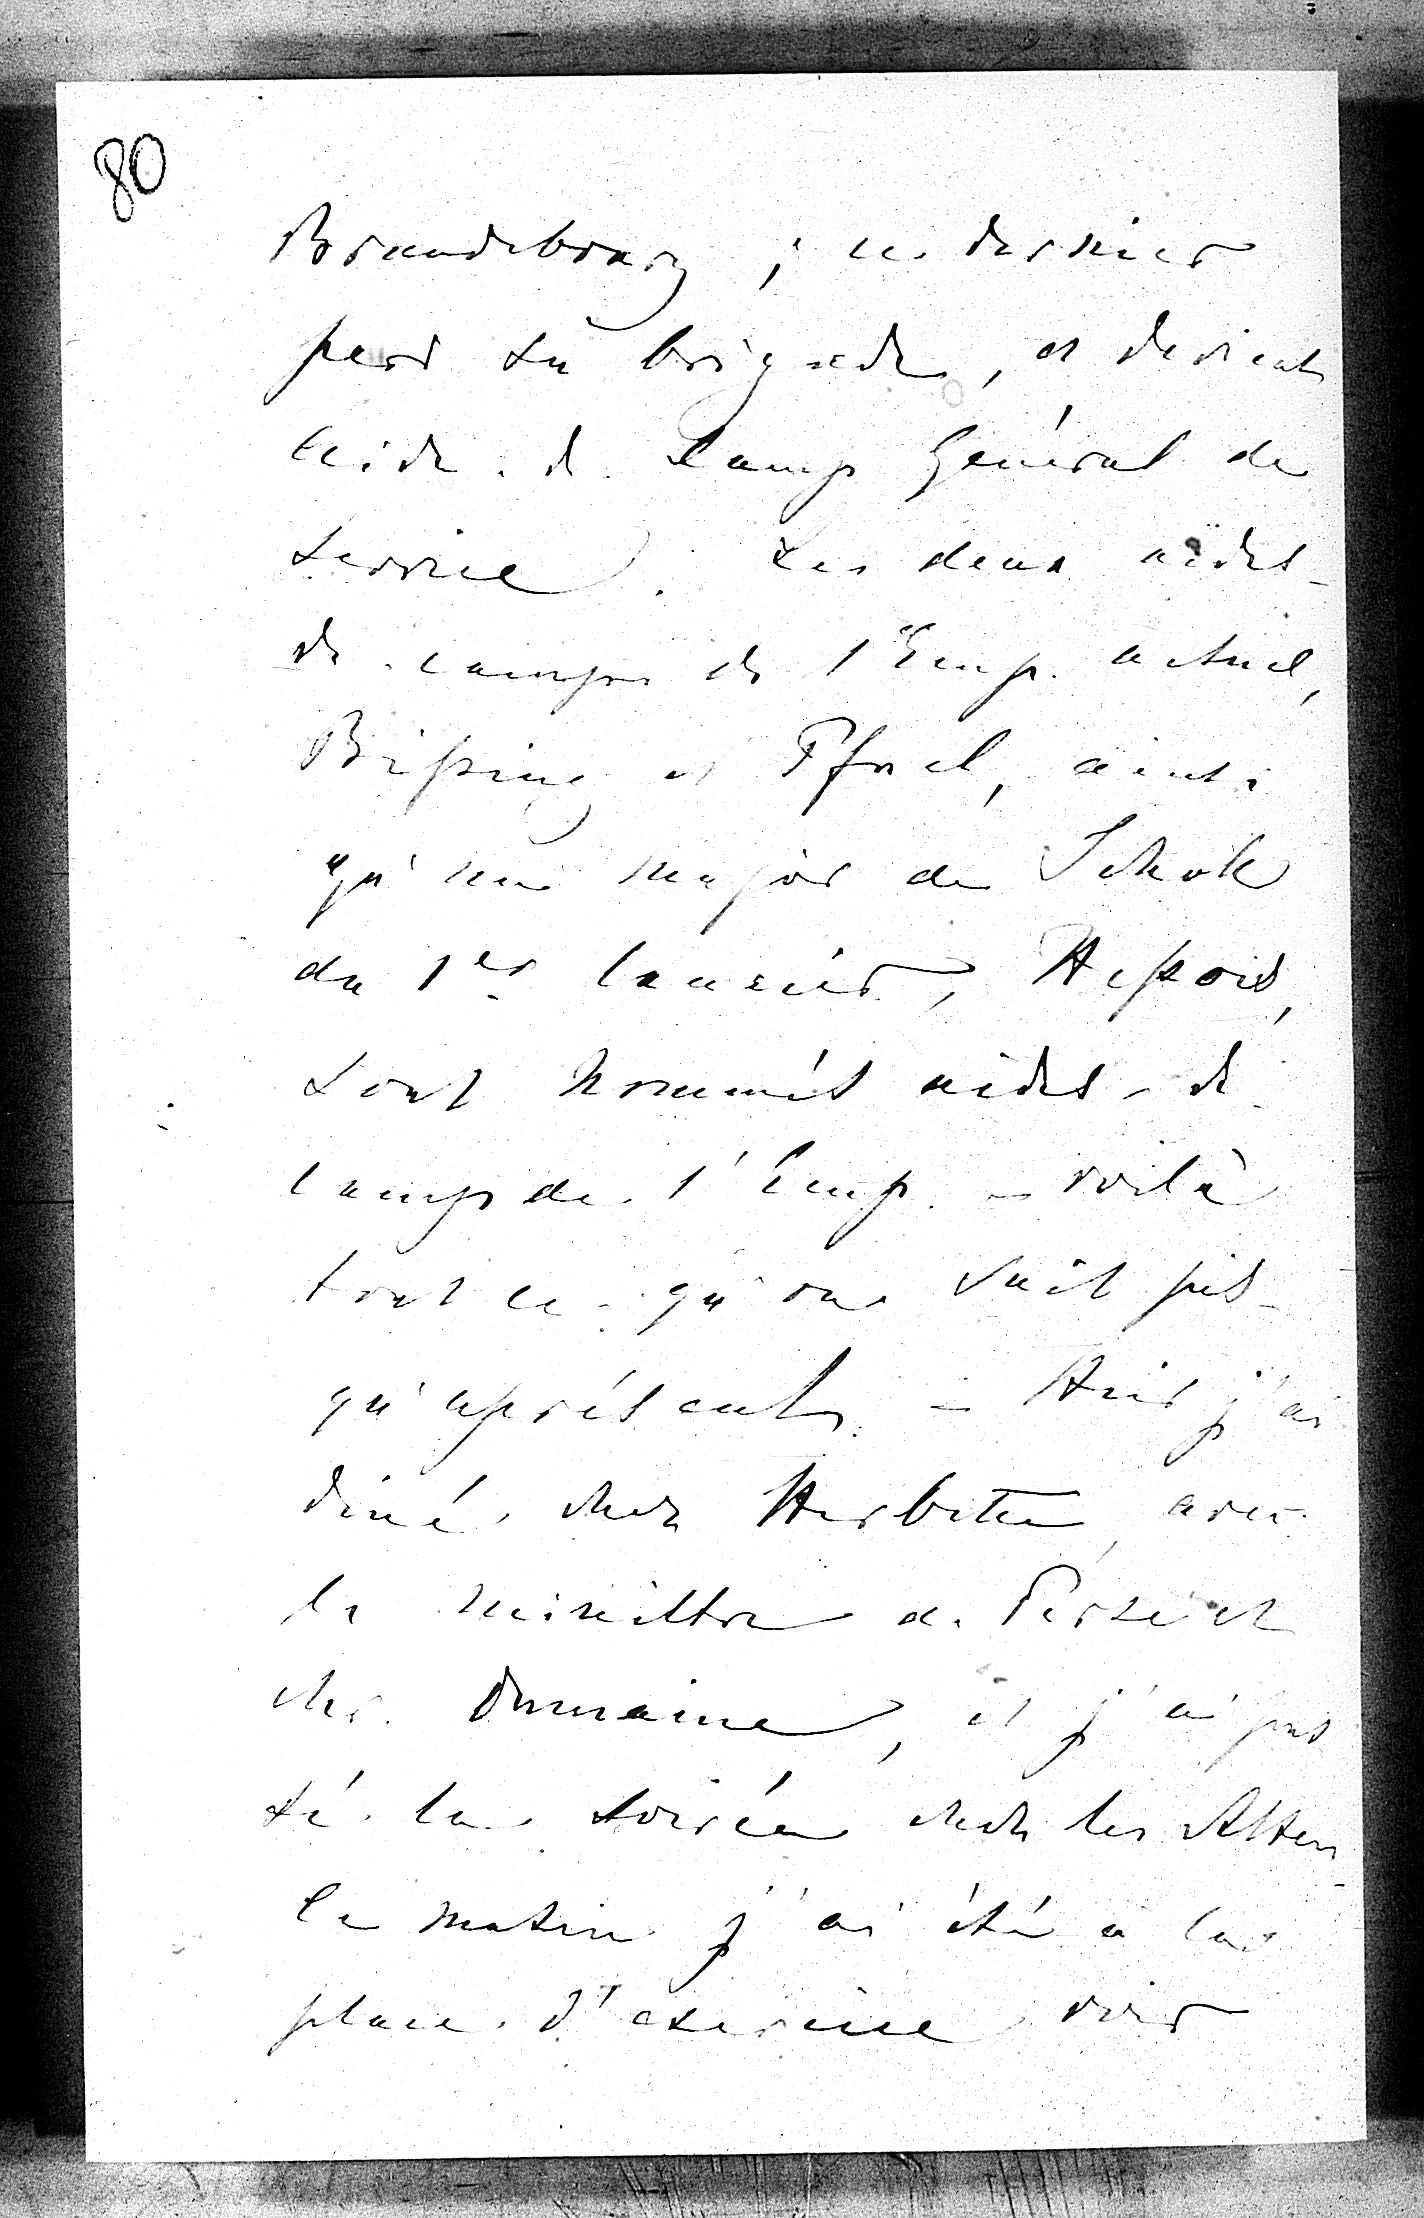 80
Brandebourg ; ce dernier
perd sa brigade, et devient
Aide-de-Camp Général de
service. Les deux aides-
de-camps de l'Emp. actuel,
Bissing et Pfuel, ainsi
qu'un major de
du 1er lancier,
sont nommés aides-de-
camp de l'Emp. - voilà
tout ce qu'on sait jus-
qu'aprésent. - Hier j'ai
diné chez Herbette, avec
le ministre de Perse et
Mr. Dumaine, et j'ai pas
sé la soirée chez les Alten
le matin j'ai été à la
place d'exercice voir